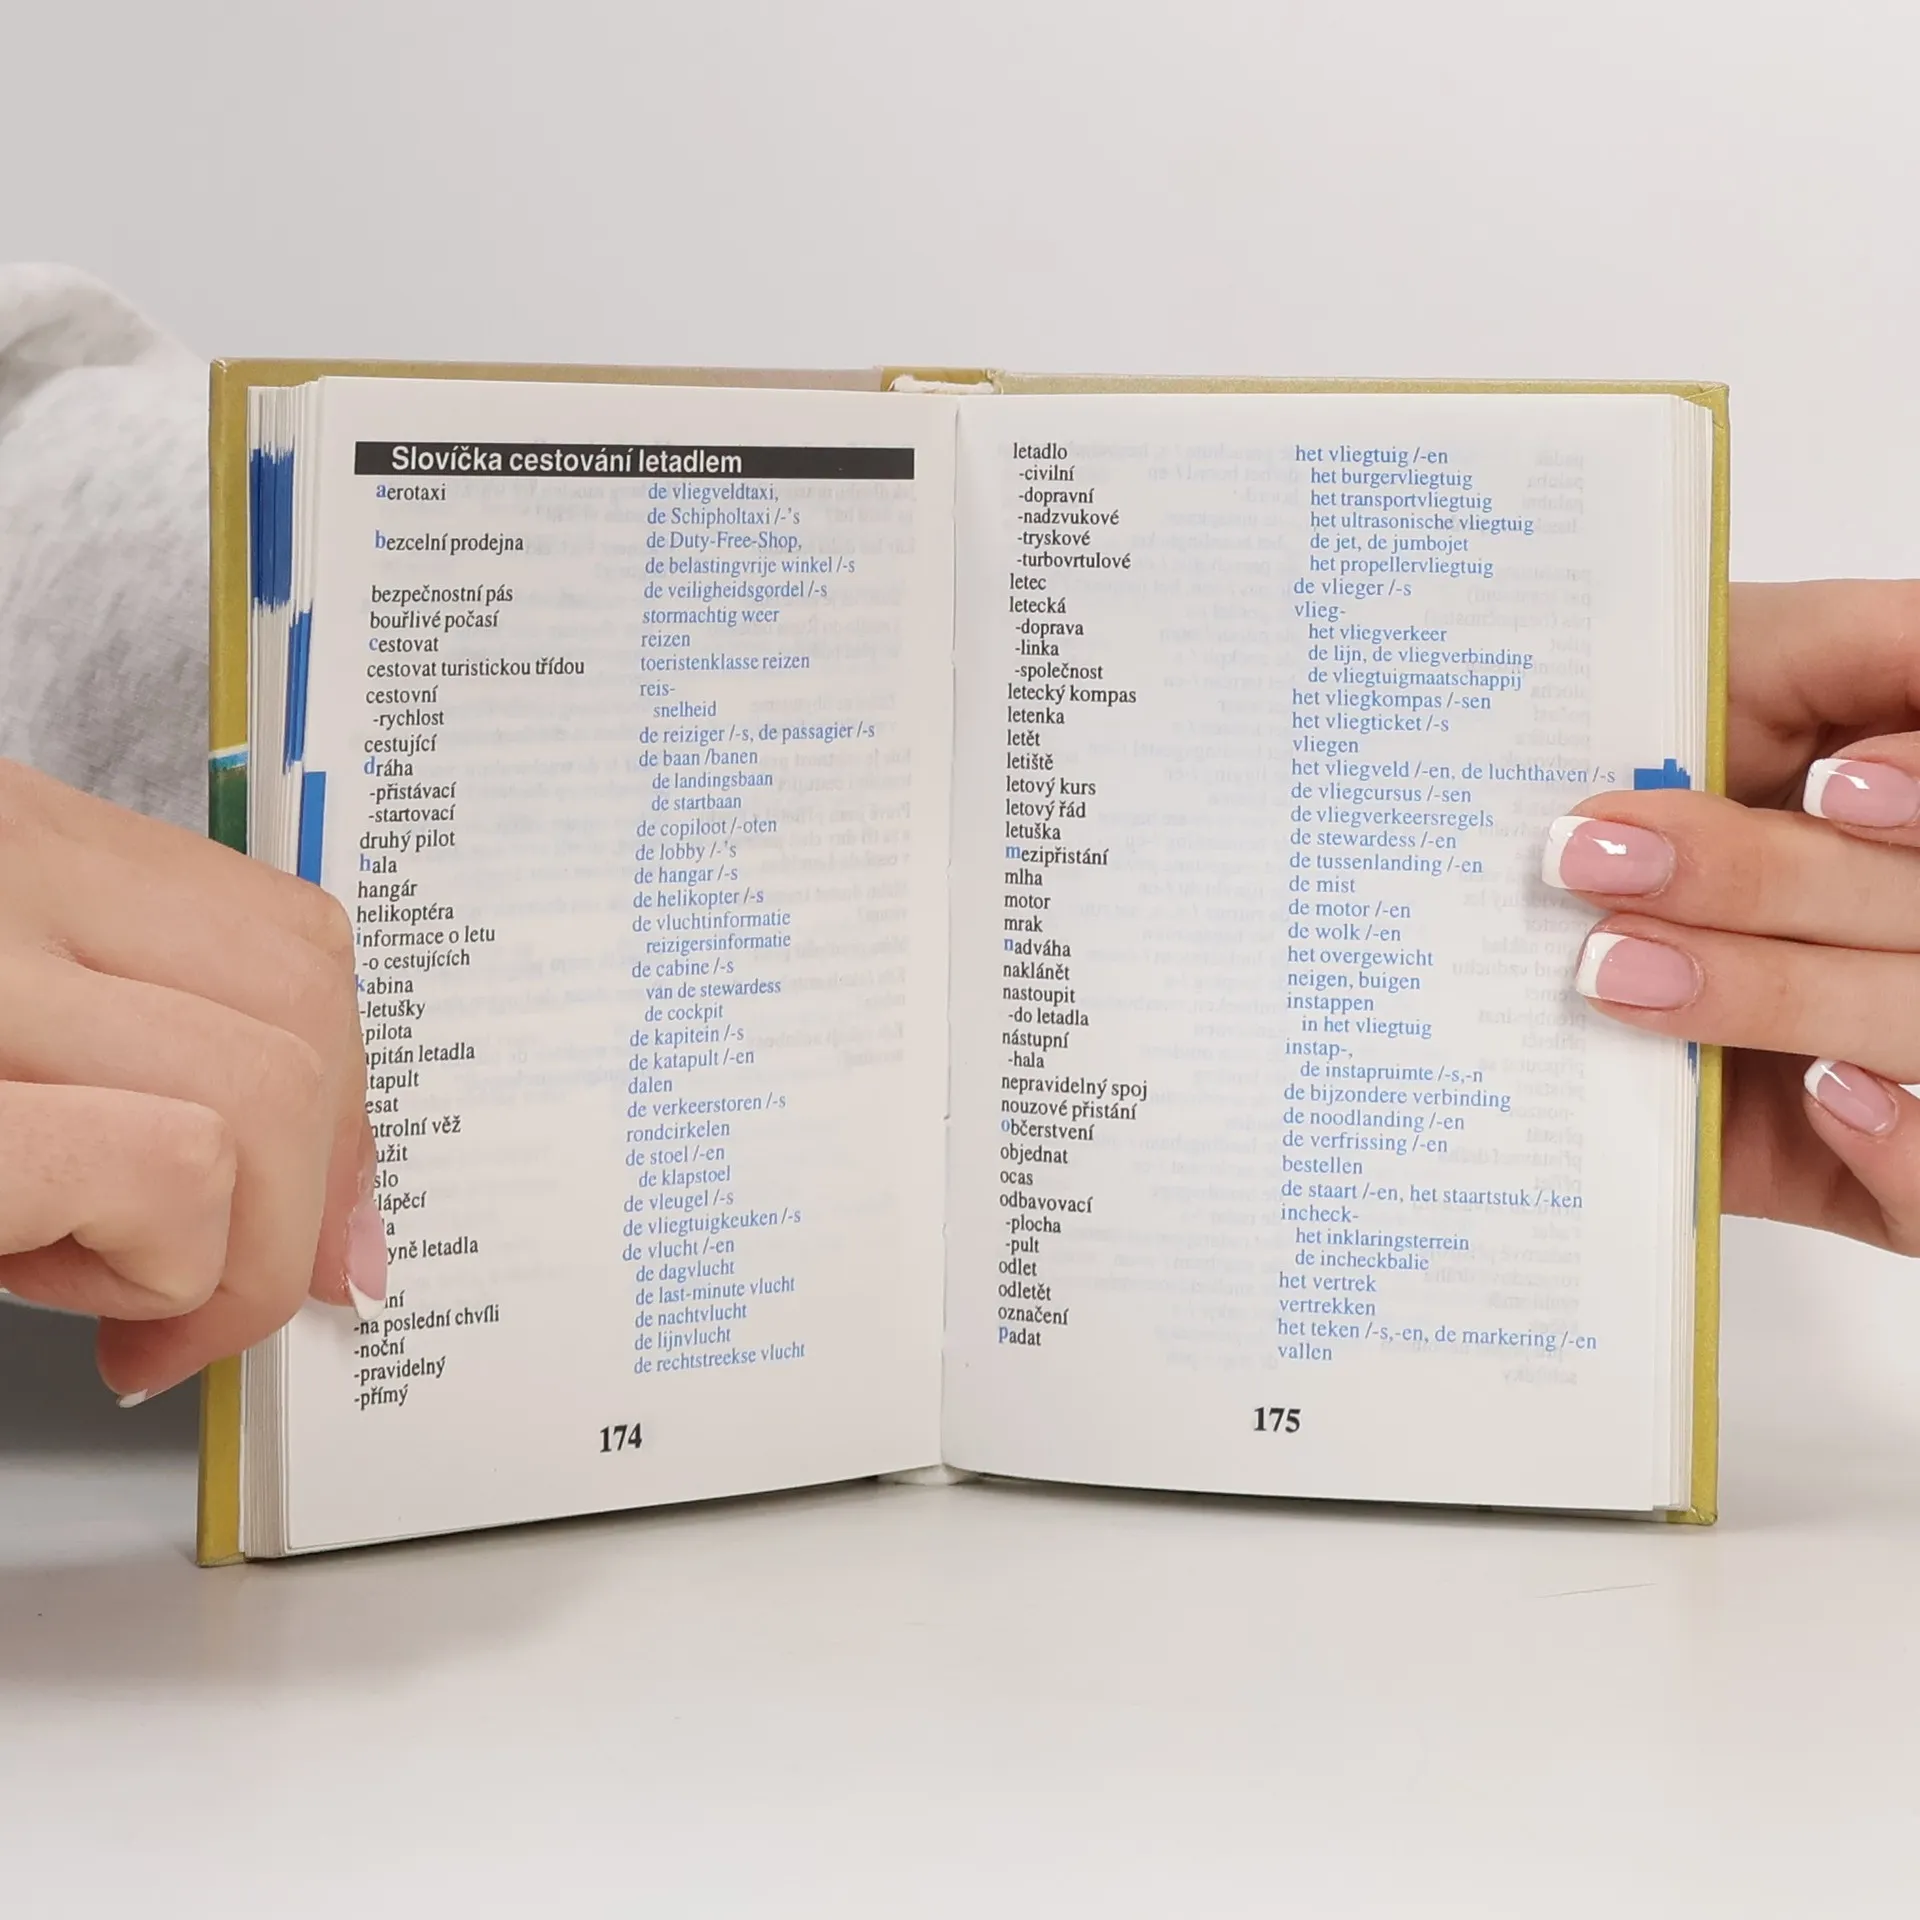 Slovíčka cestování letadlem
aerotaxi de vliegveldtaxi,
de Schipholtaxi /-'s
bezcelní prodejna de Duty-Free-Shop,
de belastingvrije winkel /-s
bezpečnostní pás de veiligheidsgordel /-s
bouřlivé počasí stormachtig weer
cestovat reizen
cestovat turistickou třídou toeristenklasse reizen
cestovní reis-
-rychlost snelheid
cestující de reiziger /-s, de passagier /-s
dráha de baan /banen
-přistávací de landingsbaan
-startovací de startbaan
druhý pilot de copiloot /-oten
hala de lobby /-'s
hangár de hangar /-s
helikoptéra de helikopter /-s
informace o letu de vluchtinformatie
-o cestujících reizigersinformatie
kabina de cabine /-s
-letušky van de stewardess
pilota de cockpit
letadla de kapitein /-s
de katapult /-en
dalen
věž de verkeerstoren /-s
rondcirkelen
de stoel /-en
de klapstoel
de vleugel /-s
letadla de vliegtuigkeuken /-s
de vlucht /-en
de dagvlucht
-na poslední chvíli de last-minute vlucht
-noční de nachtvlucht
-pravidelný de lijnvlucht
-přímý de rechtstreekse vlucht
174
letadlo het vliegtuig /-en
-civilní het burgervliegtuig
-dopravní het transportvliegtuig
-nadzvukové het ultrasonische vliegtuig
-tryskové de jet, de jumbojet
-turbovrtulové het propellervliegtuig
letec de vlieger /-s
letecká vlieg-
-doprava het vliegverkeer
-linka de lijn, de vliegverbinding
-společnost de vliegtuigmaatschappij
letecký kompas het vliegkompas /-sen
letenka het vliegticket /-s
letět vliegen
letiště het vliegveld /-en, de luchthaven /-s
letový kurs de vliegcursus /-sen
letový řád de vliegverkeersregels
letuška de stewardess /-en
mezipřistání de tussenlanding /-en
mlha de mist
motor de motor /-en
mrak de wolk /-en
nadváha het overgewicht
naklánět neigen, buigen
nastoupit instappen
-do letadla in het vliegtuig
nástupní instap-,
-hala de instapruimte /-s,-n
nepravidelný spoj de bijzondere verbinding
nouzové přistání de noodlanding /-en
občerstvení de verfrissing /-en
objednat bestellen
ocas de staart /-en, het staartstuk /-ken
odbavovací incheck-
-plocha het inklaringsterrein
-pult de incheckbalie
odlet het vertrek
odletět vertrekken
označení het teken /-s,-en, de markering /-en
padat vallen
175